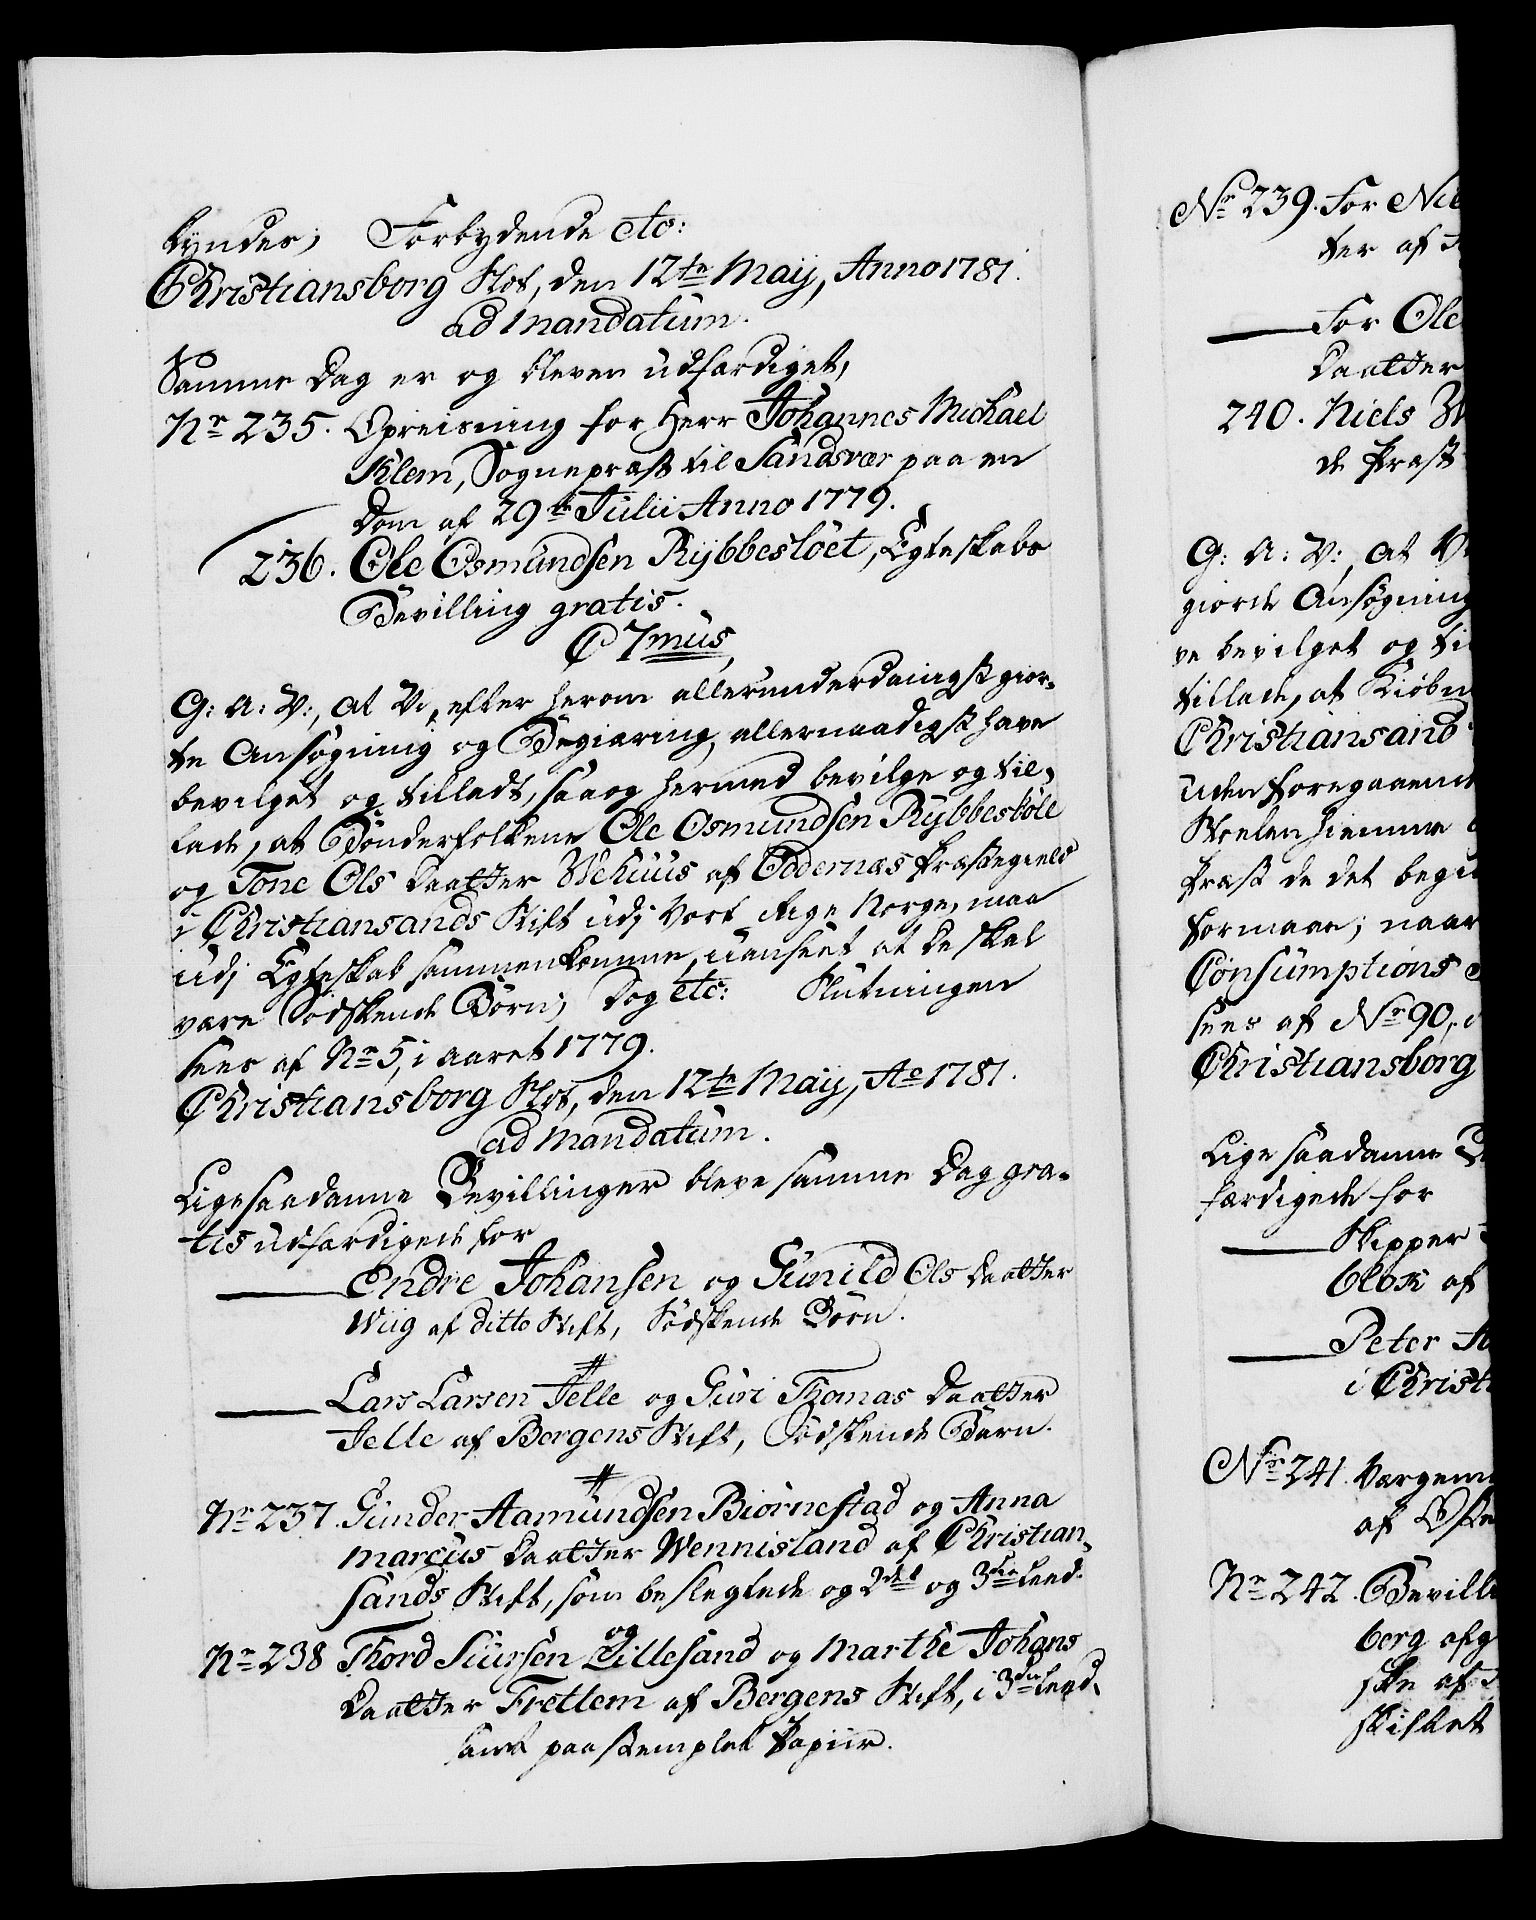 kyndes; Forbydende etc:
Christiansborg Slot, den 12te Maij, Anno 1781.
ad Mandatum.
Samme Dag er og bleven udfærdiget,
Nr 235. Opreisning for Herr Johannes Michael
Klem, Sognepræst til Sandsvær paa en
Dom af 29de Julii Anno 1779.
236. Ole Osmundsen Rybbesloet, Egteskabs
Bevilling gratis.
C 7mus,
G: A: V:, at Vi, efter herom allerunderdanigst gior-
te Ansøgning og Begiæring, allernaadigst have
bevilget og tilladt, saa og hermed bevilge og til-
lade, at Bønderfolkene Ole Osmundsen Rybbesloet
og Tone Ols Daatter Wehuus af Oddernæs Præstegield
i Christiansands Stift udj Vort Rige Norge, maa
udj Egteskab sammenkomme, uanseet at de skal
være Sødskende Børn; Dog etc: Slutningen
sees af Nr 5, i Aaret 1779.
Christiansborg Slot, den 12te Maij, Ao 1781.
ad Mandatum.
Ligesaadanne Bevillinger bleve samme Dag gra-
tis udfærdigede for
Endre Johansen og Gunild Ols Daatter
Wiig af ditto Stift, Sødskende Børn.
#
Lars Larsen Jelle og Guri Thomas Daatter
Jelle af Bergens Stift, Sødskende Børn.
#
Nr 237. Gunder Aamundsen Biørnestad og Anna
Marcus Daatter Wennisland af Christian-
sands Stift, som beslegtede og 2det og 3die Leed.
og
Nr 238 Thord Siursen Lillesand og Marthe Johans
Daatter Fretlem af Bergens Stift, i 3die Leed,
samt paa stemplet Papiir.
Nr 239. For Nie
ter af
For Ole
Daatter
240. Niels
de Præst
G: A: V:, at V
giorde Ansøgning
ve bevilget og ti
tillade, at Kiøbm
Christiansand
uden foregaaende
Stuelen hiemme
Præst de det begi
formaae; naar
Consumptions
sees af Nr 90,
Christiansborg
Lige saadanne
færdigede for
Skipper
Blok af
Peter
i Christ
Nr 241. Værgem
af
Nr 242. Bevill
berg afg
ske af
skiftet